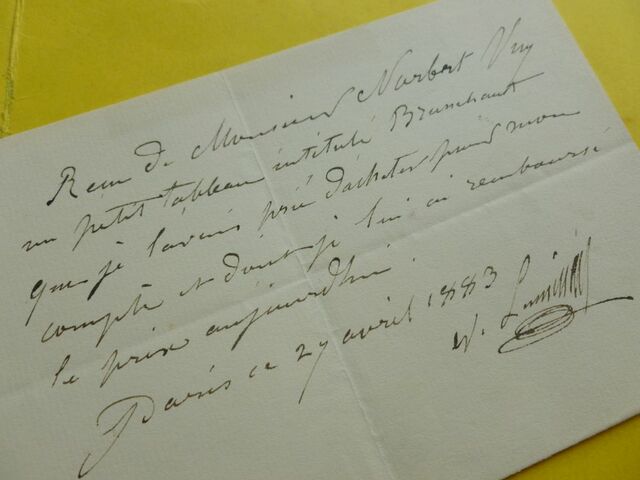 Recu de Monsieur Norbert
un petit tableau intitulé
que je l'avais prié d'acheter pour mon
compte et dont je lui ai remboursé
le prix aujourdhui.
Paris ce 29 avril 1883